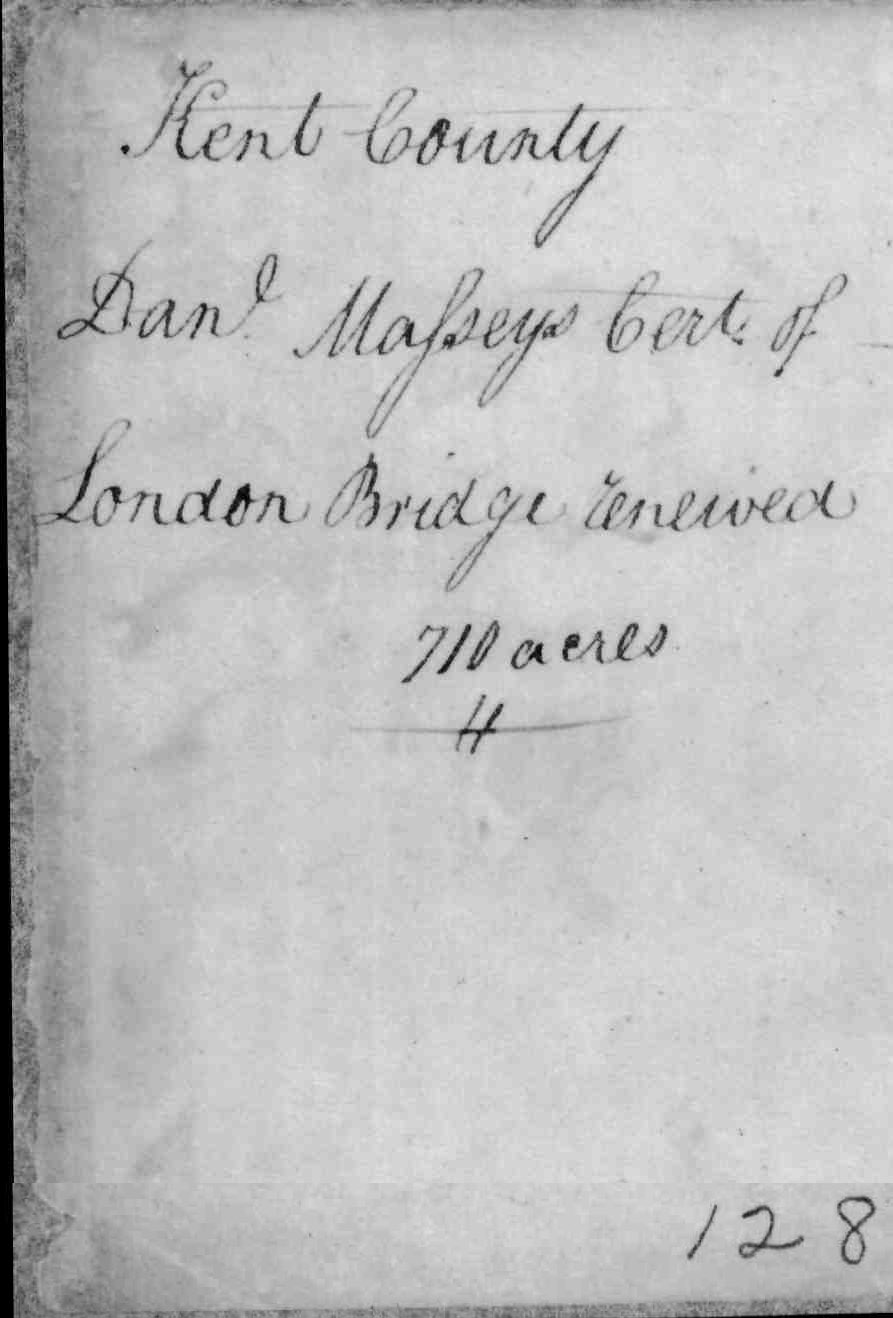 Kent County
Danl. Maſseys Cert. of
London Bridge renewed
710 acres
H
128